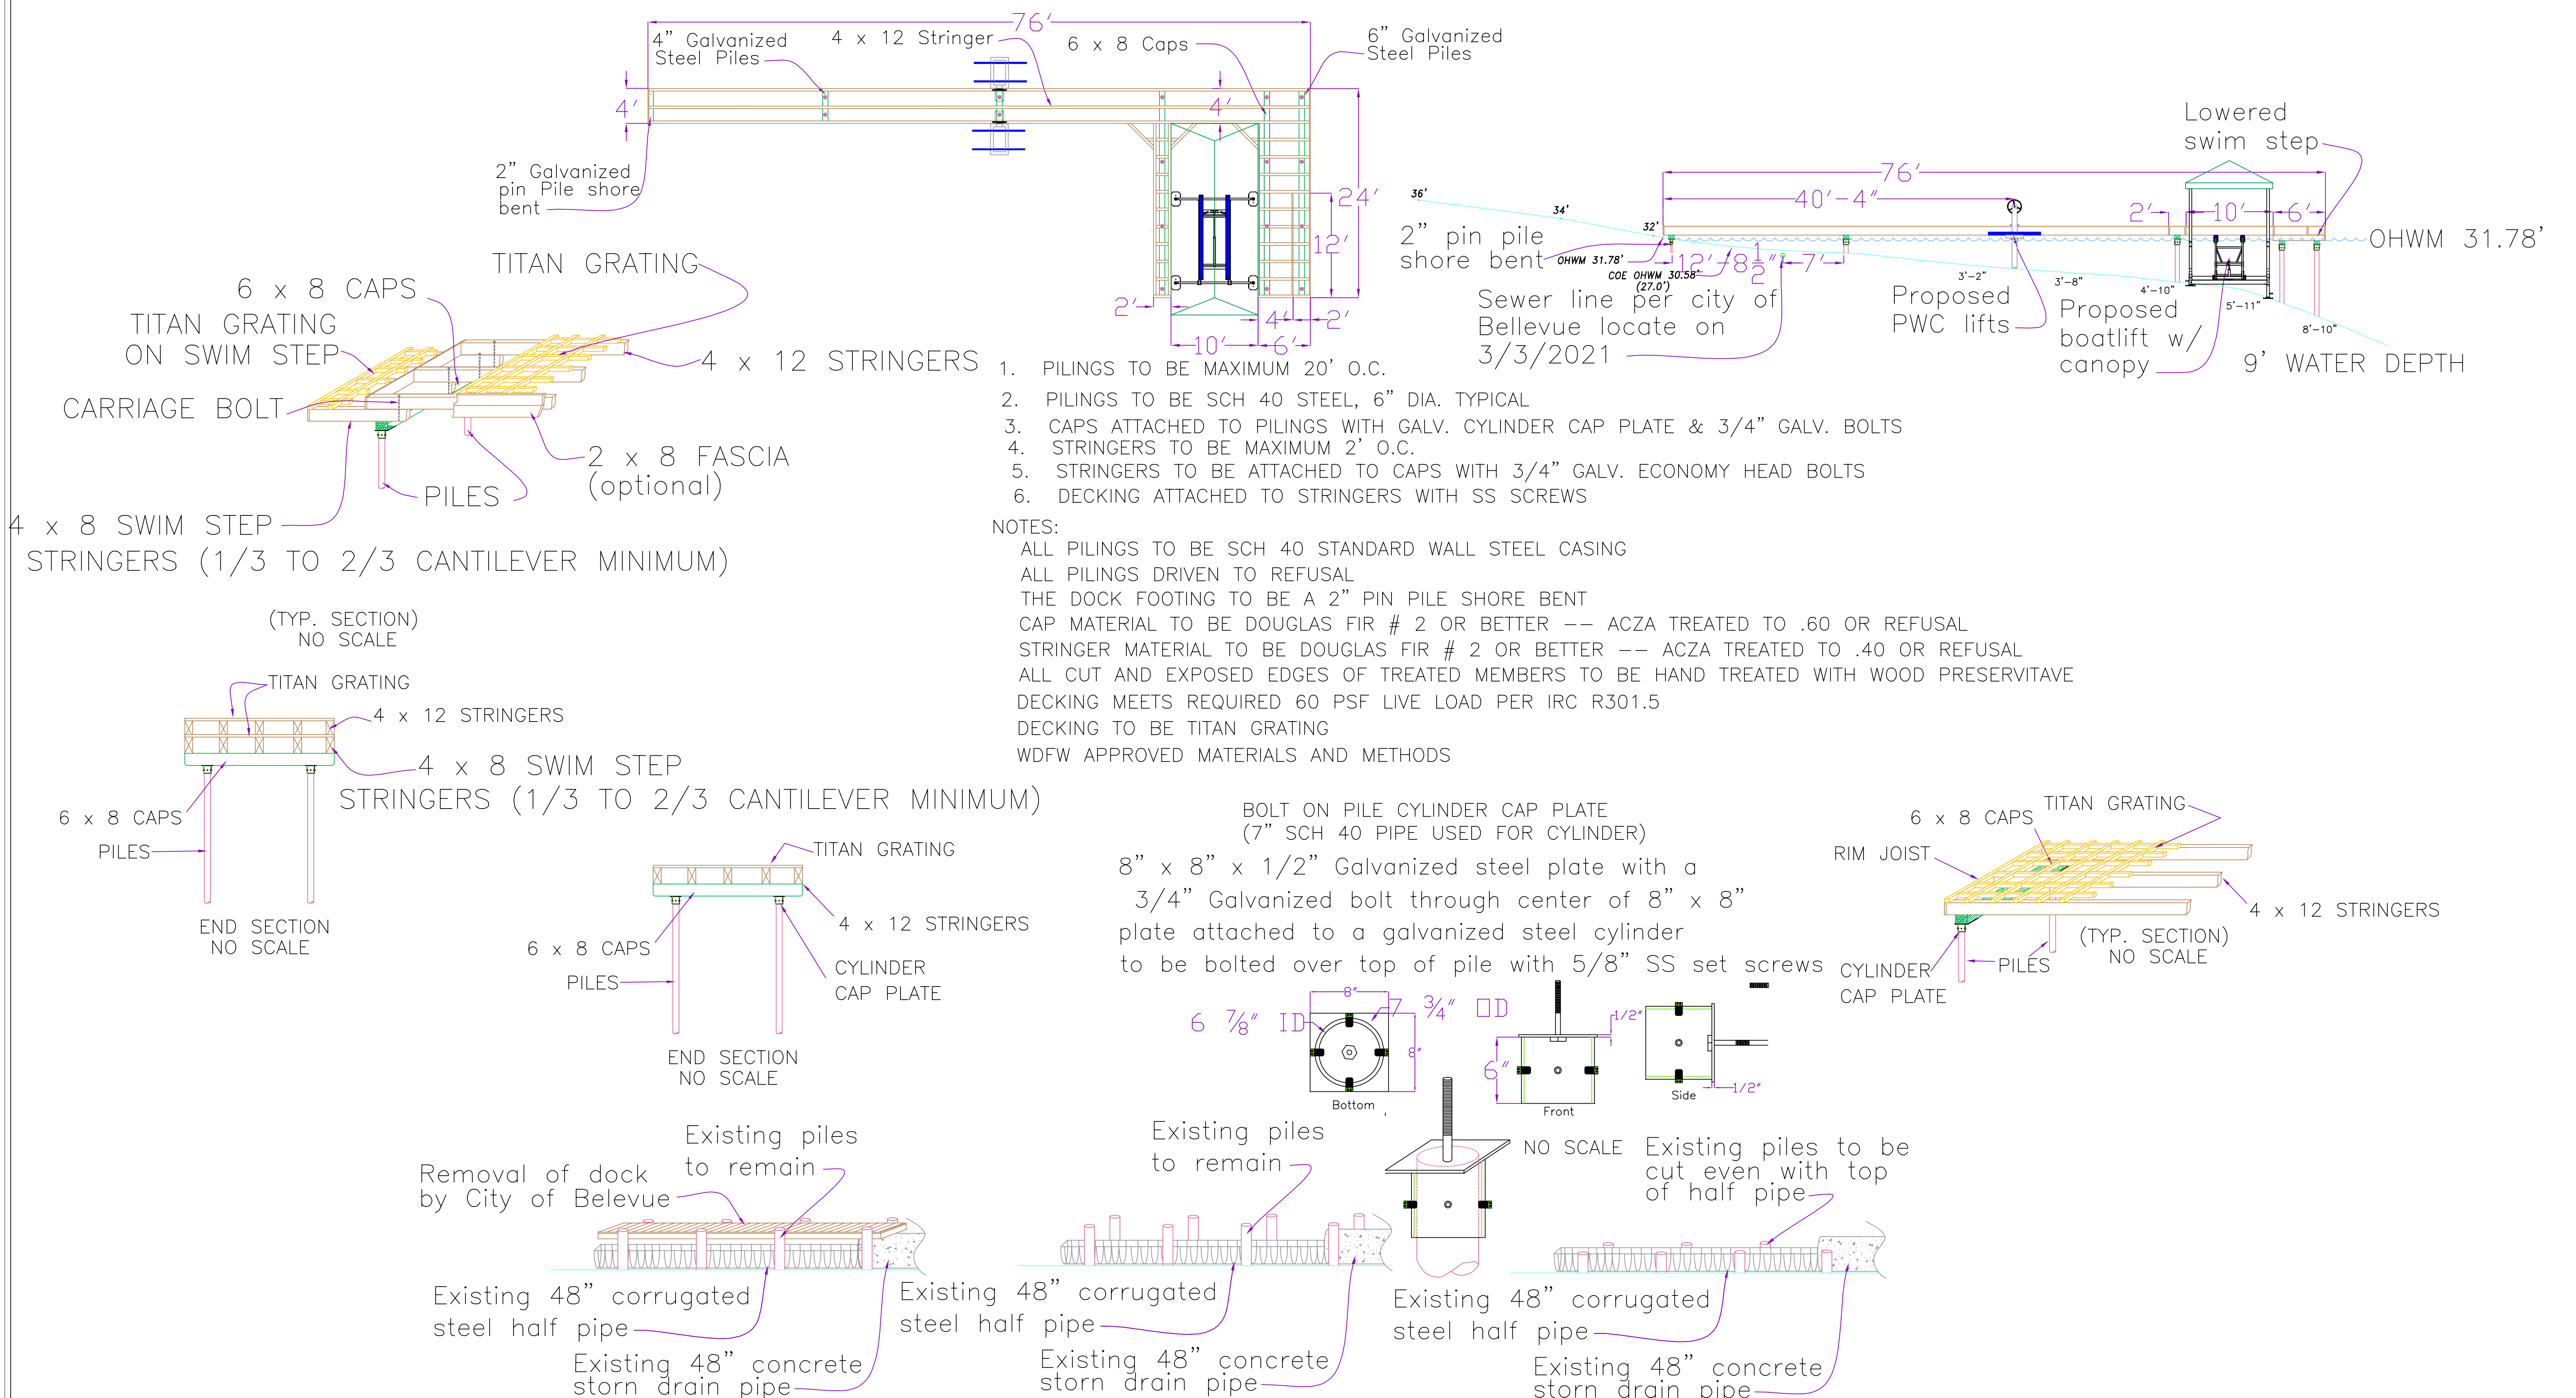 76'
4" Galvanized
Steel Piles
4 x 12 Stringer
6 x 8 Caps
6" Galvanized
Steel Piles
4'
4'
24'
12'
2" Galvanized
pin Pile shore
bent
2'
4'
2'
10'
6'
Lowered
swim step
76'
40'-4"
2'
10'
6'
36'
34'
32'
2" pin pile
shore bent
OHWM 31.78'
OHWM 31.78'
12'-8 1/2"
7'
COE OHWM 30.58'
(27.0')
3'-2"
3'-8"
4'-10"
5'-11"
8'-10"
Sewer line per city of
Bellevue locate on
3/3/2021
Proposed
PWC lifts
Proposed
boatlift w/
canopy
9' WATER DEPTH
TITAN GRATING
6 x 8 CAPS
TITAN GRATING
ON SWIM STEP
4 x 12 STRINGERS
CARRIAGE BOLT
2 x 8 FASCIA
(optional)
PILES
4 x 8 SWIM STEP
STRINGERS (1/3 TO 2/3 CANTILEVER MINIMUM)
(TYP. SECTION)
NO SCALE
1. PILINGS TO BE MAXIMUM 20' O.C.
2. PILINGS TO BE SCH 40 STEEL, 6" DIA. TYPICAL
3. CAPS ATTACHED TO PILINGS WITH GALV. CYLINDER CAP PLATE & 3/4" GALV. BOLTS
4. STRINGERS TO BE MAXIMUM 2' O.C.
5. STRINGERS TO BE ATTACHED TO CAPS WITH 3/4" GALV. ECONOMY HEAD BOLTS
6. DECKING ATTACHED TO STRINGERS WITH SS SCREWS
NOTES:
ALL PILINGS TO BE SCH 40 STANDARD WALL STEEL CASING
ALL PILINGS DRIVEN TO REFUSAL
THE DOCK FOOTING TO BE A 2" PIN PILE SHORE BENT
CAP MATERIAL TO BE DOUGLAS FIR # 2 OR BETTER -- ACZA TREATED TO .60 OR REFUSAL
STRINGER MATERIAL TO BE DOUGLAS FIR # 2 OR BETTER -- ACZA TREATED TO .40 OR REFUSAL
ALL CUT AND EXPOSED EDGES OF TREATED MEMBERS TO BE HAND TREATED WITH WOOD PRESERVITAVE
DECKING MEETS REQUIRED 60 PSF LIVE LOAD PER IRC R301.5
DECKING TO BE TITAN GRATING
WDFW APPROVED MATERIALS AND METHODS
TITAN GRATING
4 x 12 STRINGERS
4 x 8 SWIM STEP
STRINGERS (1/3 TO 2/3 CANTILEVER MINIMUM)
6 x 8 CAPS
PILES
END SECTION
NO SCALE
TITAN GRATING
4 x 12 STRINGERS
6 x 8 CAPS
PILES
CYLINDER
CAP PLATE
END SECTION
NO SCALE
BOLT ON PILE CYLINDER CAP PLATE
(7" SCH 40 PIPE USED FOR CYLINDER)
8" x 8" x 1/2" Galvanized steel plate with a
3/4" Galvanized bolt through center of 8" x 8"
plate attached to a galvanized steel cylinder
to be bolted over top of pile with 5/8" SS set screws
8"
6 7/8" ID
7 3/4" OD
8"
Bottom
1/2"
6"
Front
Side
1/2"
NO SCALE
TITAN GRATING
6 x 8 CAPS
RIM JOIST
4 x 12 STRINGERS
(TYP. SECTION)
NO SCALE
PILES
CYLINDER
CAP PLATE
Existing piles
to remain
Removal of dock
by City of Belevue
Existing 48" corrugated
steel half pipe
Existing 48" concrete
storn drain pipe
Existing piles
to remain
Existing 48" corrugated
steel half pipe
Existing 48" concrete
storn drain pipe
Existing piles to be
cut even with top
of half pipe
Existing 48" corrugated
steel half pipe
Existing 48" concrete
storn drain pipe